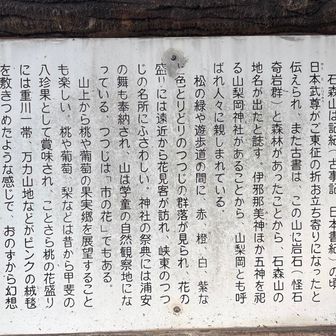 石森山は記紀(古事記 日本書紀)の頃
日本武尊がご東征の折お立ち寄りになったと
伝えられ、また古書は、この山に岩石(怪石
奇岩群)と森林があったことから、石森山の
地名が出たと誌す。伊邪那美神ほか五神を祀
る山梨岡神社があることから、山梨岡とも呼
ばれ人々に親しまれている。
松の緑や遊歩道の間に、赤 橙 白 紫な
色とりどりのつつじの群落が見られ、花の
盛りには遠近から花見客が訪れ、峡東のつつ
じの名所にふさわしい。神社の祭典には浦安
の舞も奉納され、山は学童の自然観察地にな
っている。つつじは、「市の花」でもある。
山上から桃や葡萄の果実郷を展望すること
も楽しい。桃や葡萄、梨などは昔から甲斐の
八珍果として賞味され、ことさら桃の花盛り
には重川一帯、万力山地などがピンクの絨毯
を敷きつめたような感じで、おのずから幻想